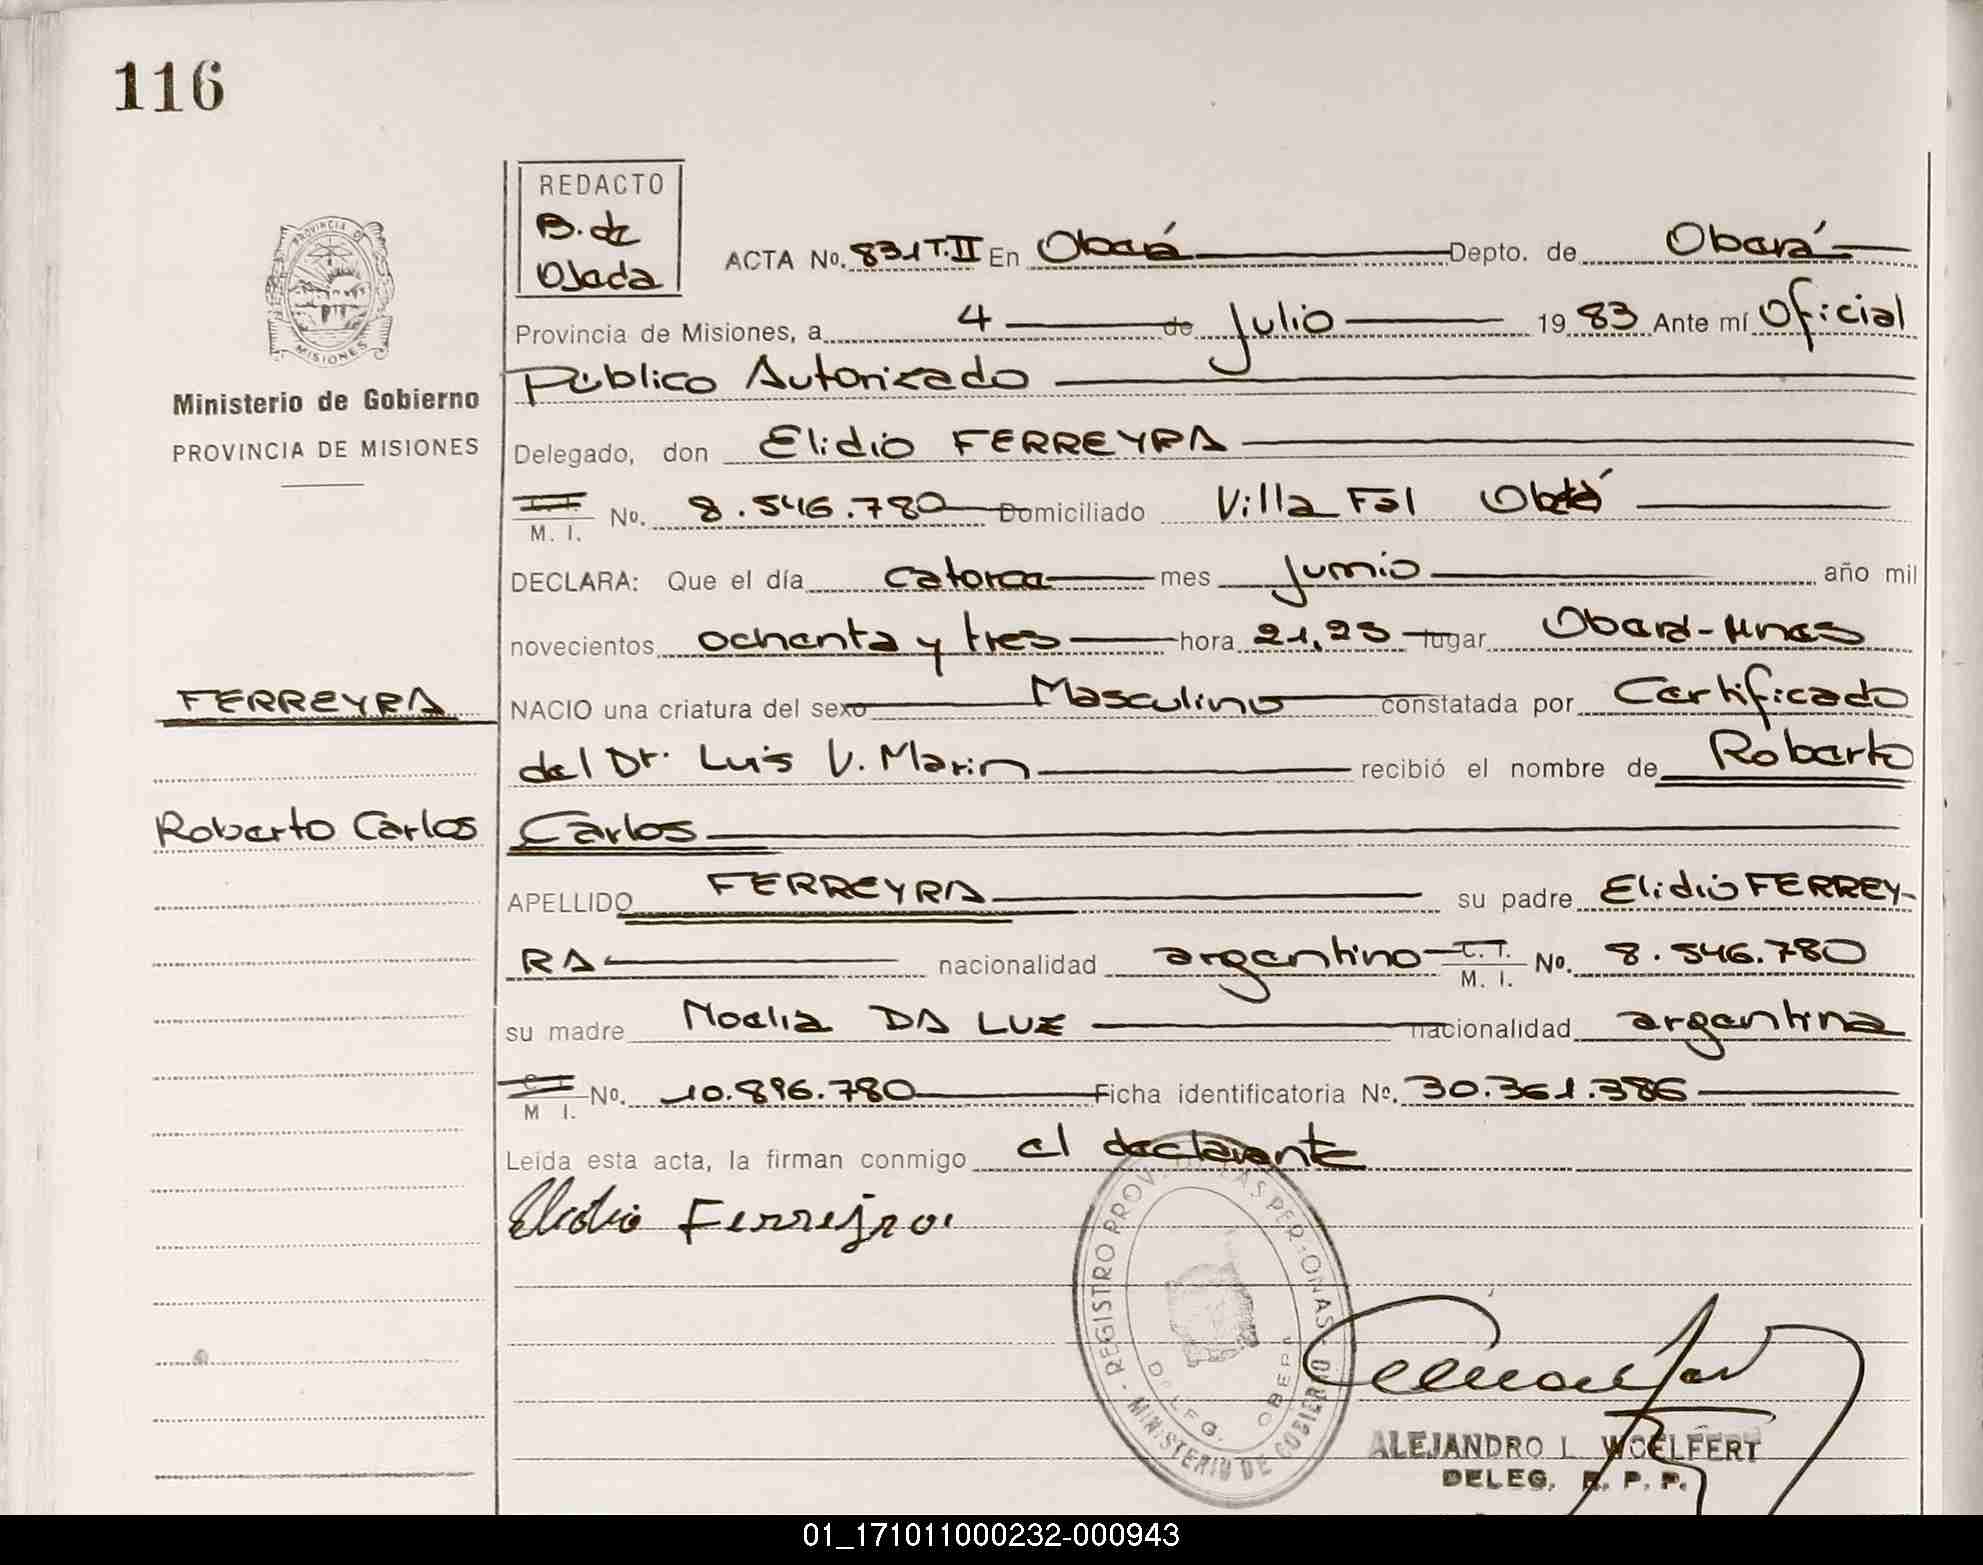 116
REDACTO
B. de
Ojeda
ACTA No. 831 T.II En Oberá Depto. de Oberá
PROVINCIA DE
MISIONES
Provincia de Misiones, a 4 de Julio 1983 Ante mí Oficial
Ministerio de Gobierno
Público Autorizado
PROVINCIA DE MISIONES
Delegado, don Elidio FERREYRA
M. I. No. 8.546.780 Domiciliado Villa Fal Oberá
DECLARA: Que el día catorce mes junio año mil
novecientos ochenta y tres hora 21,25 lugar Oberá-Mnes
FERREYRA
NACIO una criatura del sexo Masculino constatada por Certificado
del Dr. Luis V. Marin recibió el nombre de Roberto
Roberto Carlos
Carlos
APELLIDO FERREYRA su padre Elidio FERREY-
RA nacionalidad argentino C. I. M. I. No. 8.546.780
su madre Noelia DA LUZ nacionalidad argentina
C. I. M I. No. 10.896.780 Ficha identificatoria No. 30.361.386
Leída esta acta, la firman conmigo el declarante
Elidio Ferreyra
REGISTRO PROV. DE LAS PERSONAS
DELEG. OBERA
MINISTERIO DE GOBIERNO
ALEJANDRO L. WOELFERT
DELEG. R. P. P.
01_171011000232-000943